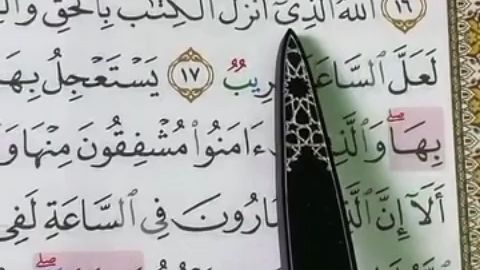 ١٦ ٱللَّهُ ٱلَّذِىٓ أَنزَلَ ٱلْكِتَٰبَ بِٱلْحَقِّ
لَعَلَّ ٱلسَّاعَةَ قَرِيبٌ ١٧ يَسْتَعْجِلُ بِهَا
بِهَا ۖ وَٱلَّذِينَ ءَامَنُوا۟ مُشْفِقُونَ مِنْهَا
أَلَآ إِنَّ ٱلَّذِينَ يُمَارُونَ فِى ٱلسَّاعَةِ لَفِى